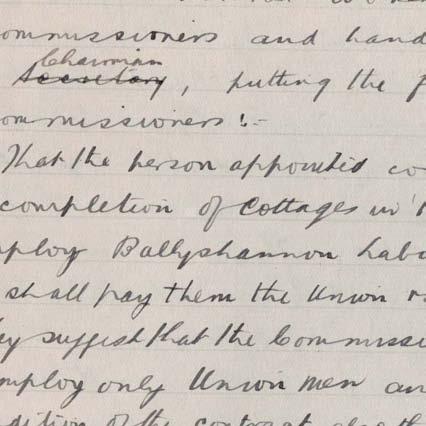 ommissioners and hand
Chairman
Secretary, putting the f
ommissioners :-
That the person appointed co
completion of Cottages in
mploy Ballyshannon Labo
shall pay them the Union r
ey suggest that the Commissi
mploy only Union men an
dition of the contract